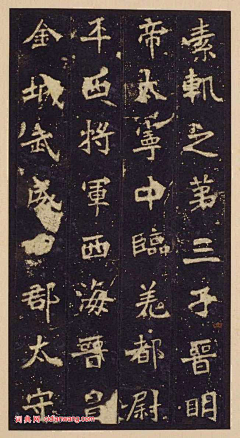 素軌之第三子晉明
帝大寧中臨羌都尉
平西將軍西海晉昌
金城武威四郡太守
cidianwang.com